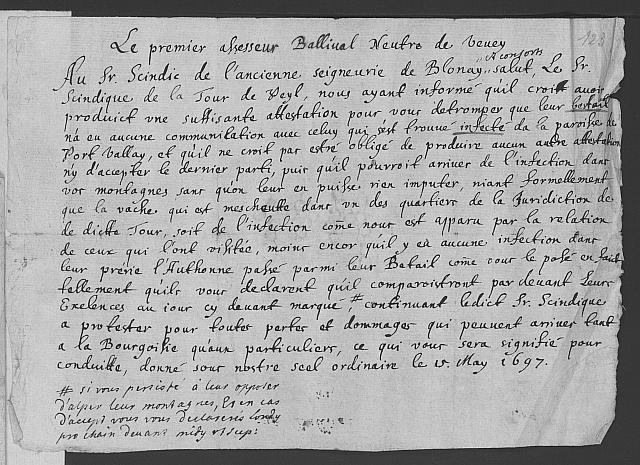 123
Le premier assesseur Ballival Neutre de Vevey
& consorts
Au Sr. Scindic de l'ancienne seigneurie de Blonay, salut, Le Sr.
Scindique de la Tour de Peyl, nous ayant informé qu'il croit avoir
produict vne suffisante attestation pour vous detromper que leur bestail
n'a eu aucune communication avec celuy qui s'est trouvé infecté da la paroisse de
Port Vallay, et qu'il ne croit pas estre obligé de produire aucun autre attestation
ny d'accepter le dernier parti, puis qu'il pourroit arriver de l'infection dans
vos montagnes sans qu'on leur en puisse rien imputer, niant formellement
que la vache qui est mescheutte dans vn des quartiers de la Juridiction de
de dicte Tour, soit de l'infection come nous est apparu par la relation
de ceux qui l'ont visitée, moins encor qu'il y eu aucune infection dans
leur prérie l'Authonne passé parmi leur Betail come vous le posé en fait
tellement qu'ils vous declarent qu'il comparoistront par devant Leurs
Exelences au jour cy devant marqué, # continuant ledict Sr. Scindique
a protester pour toutes pertes et dommages qui peuvent arriver tant
a la Bourgoisie qu'aux particuliers, ce qui vous sera signifié pour
conduitte, donné sous nostre seel ordinaire le 15. May 1697.
# si vous persisté à leur opposer
d'alper leur montagnes, Et en cas
d'accept vous vous declarerés
prochain devant midy